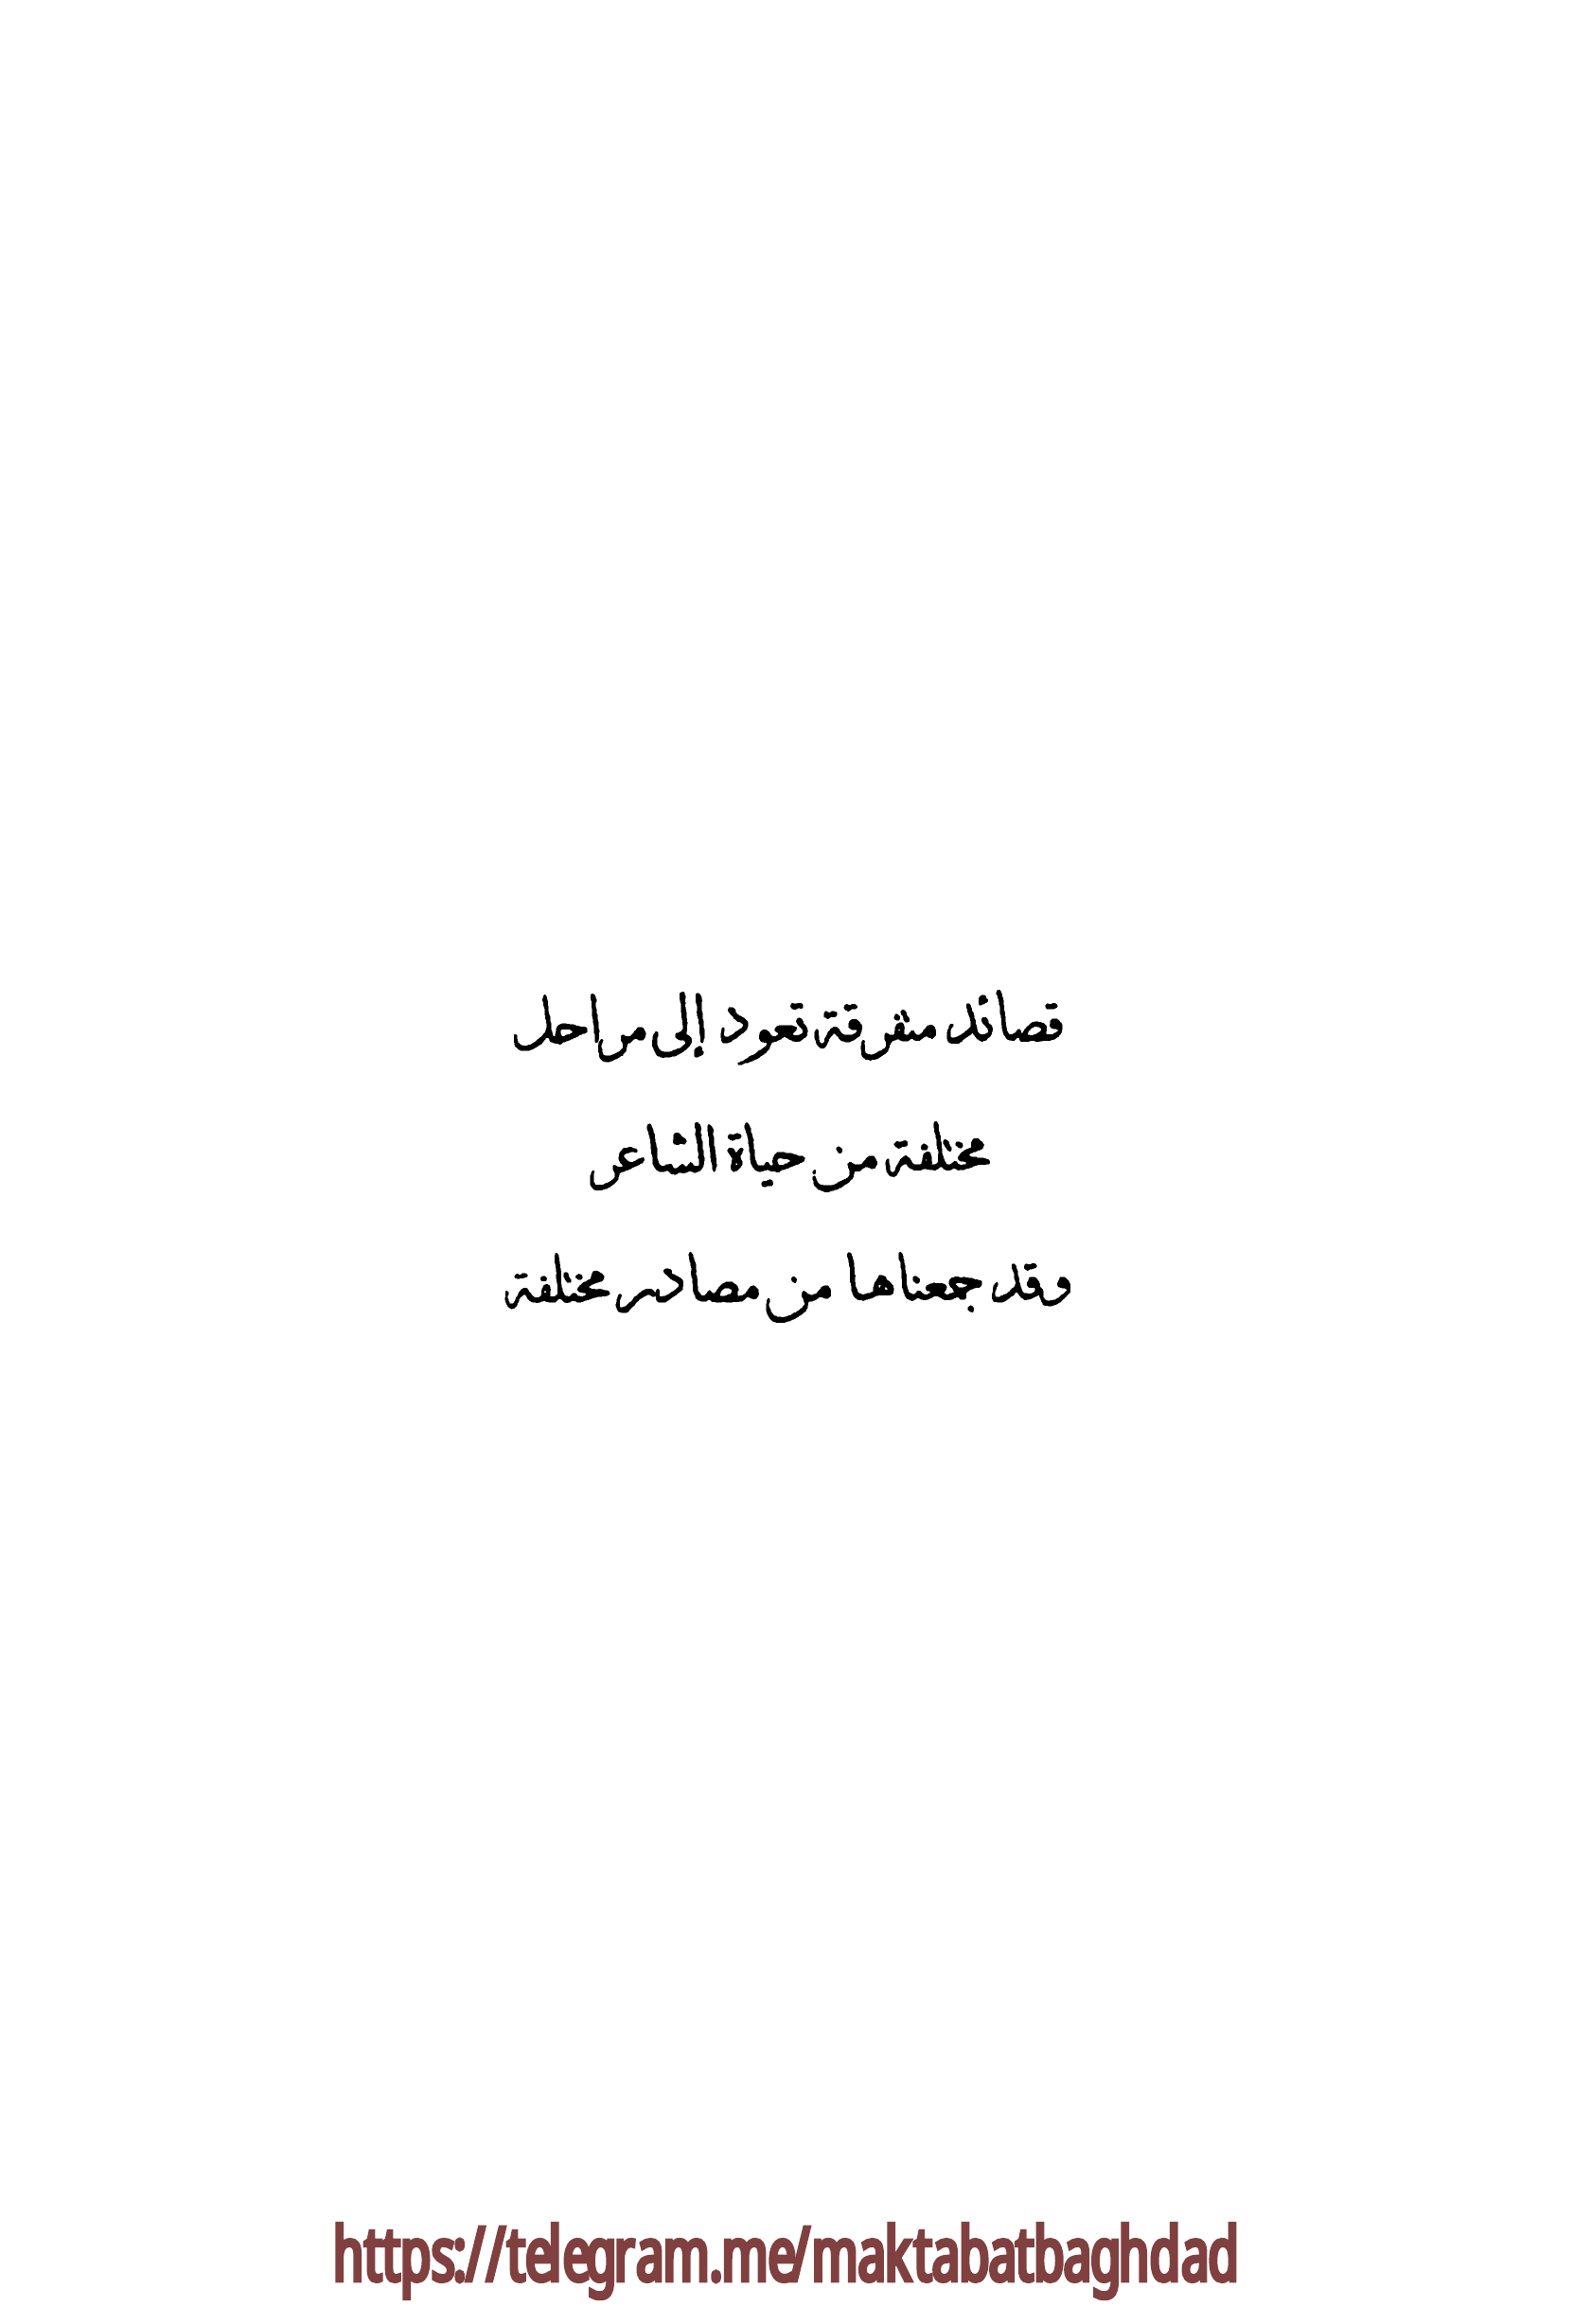 قصائد متفرقة تعود إلى مراحل
مختلفة من حياة الشاعر
وقد جمعناها من مصادر مختلفة
https://telegram.me/maktabatbaghdad